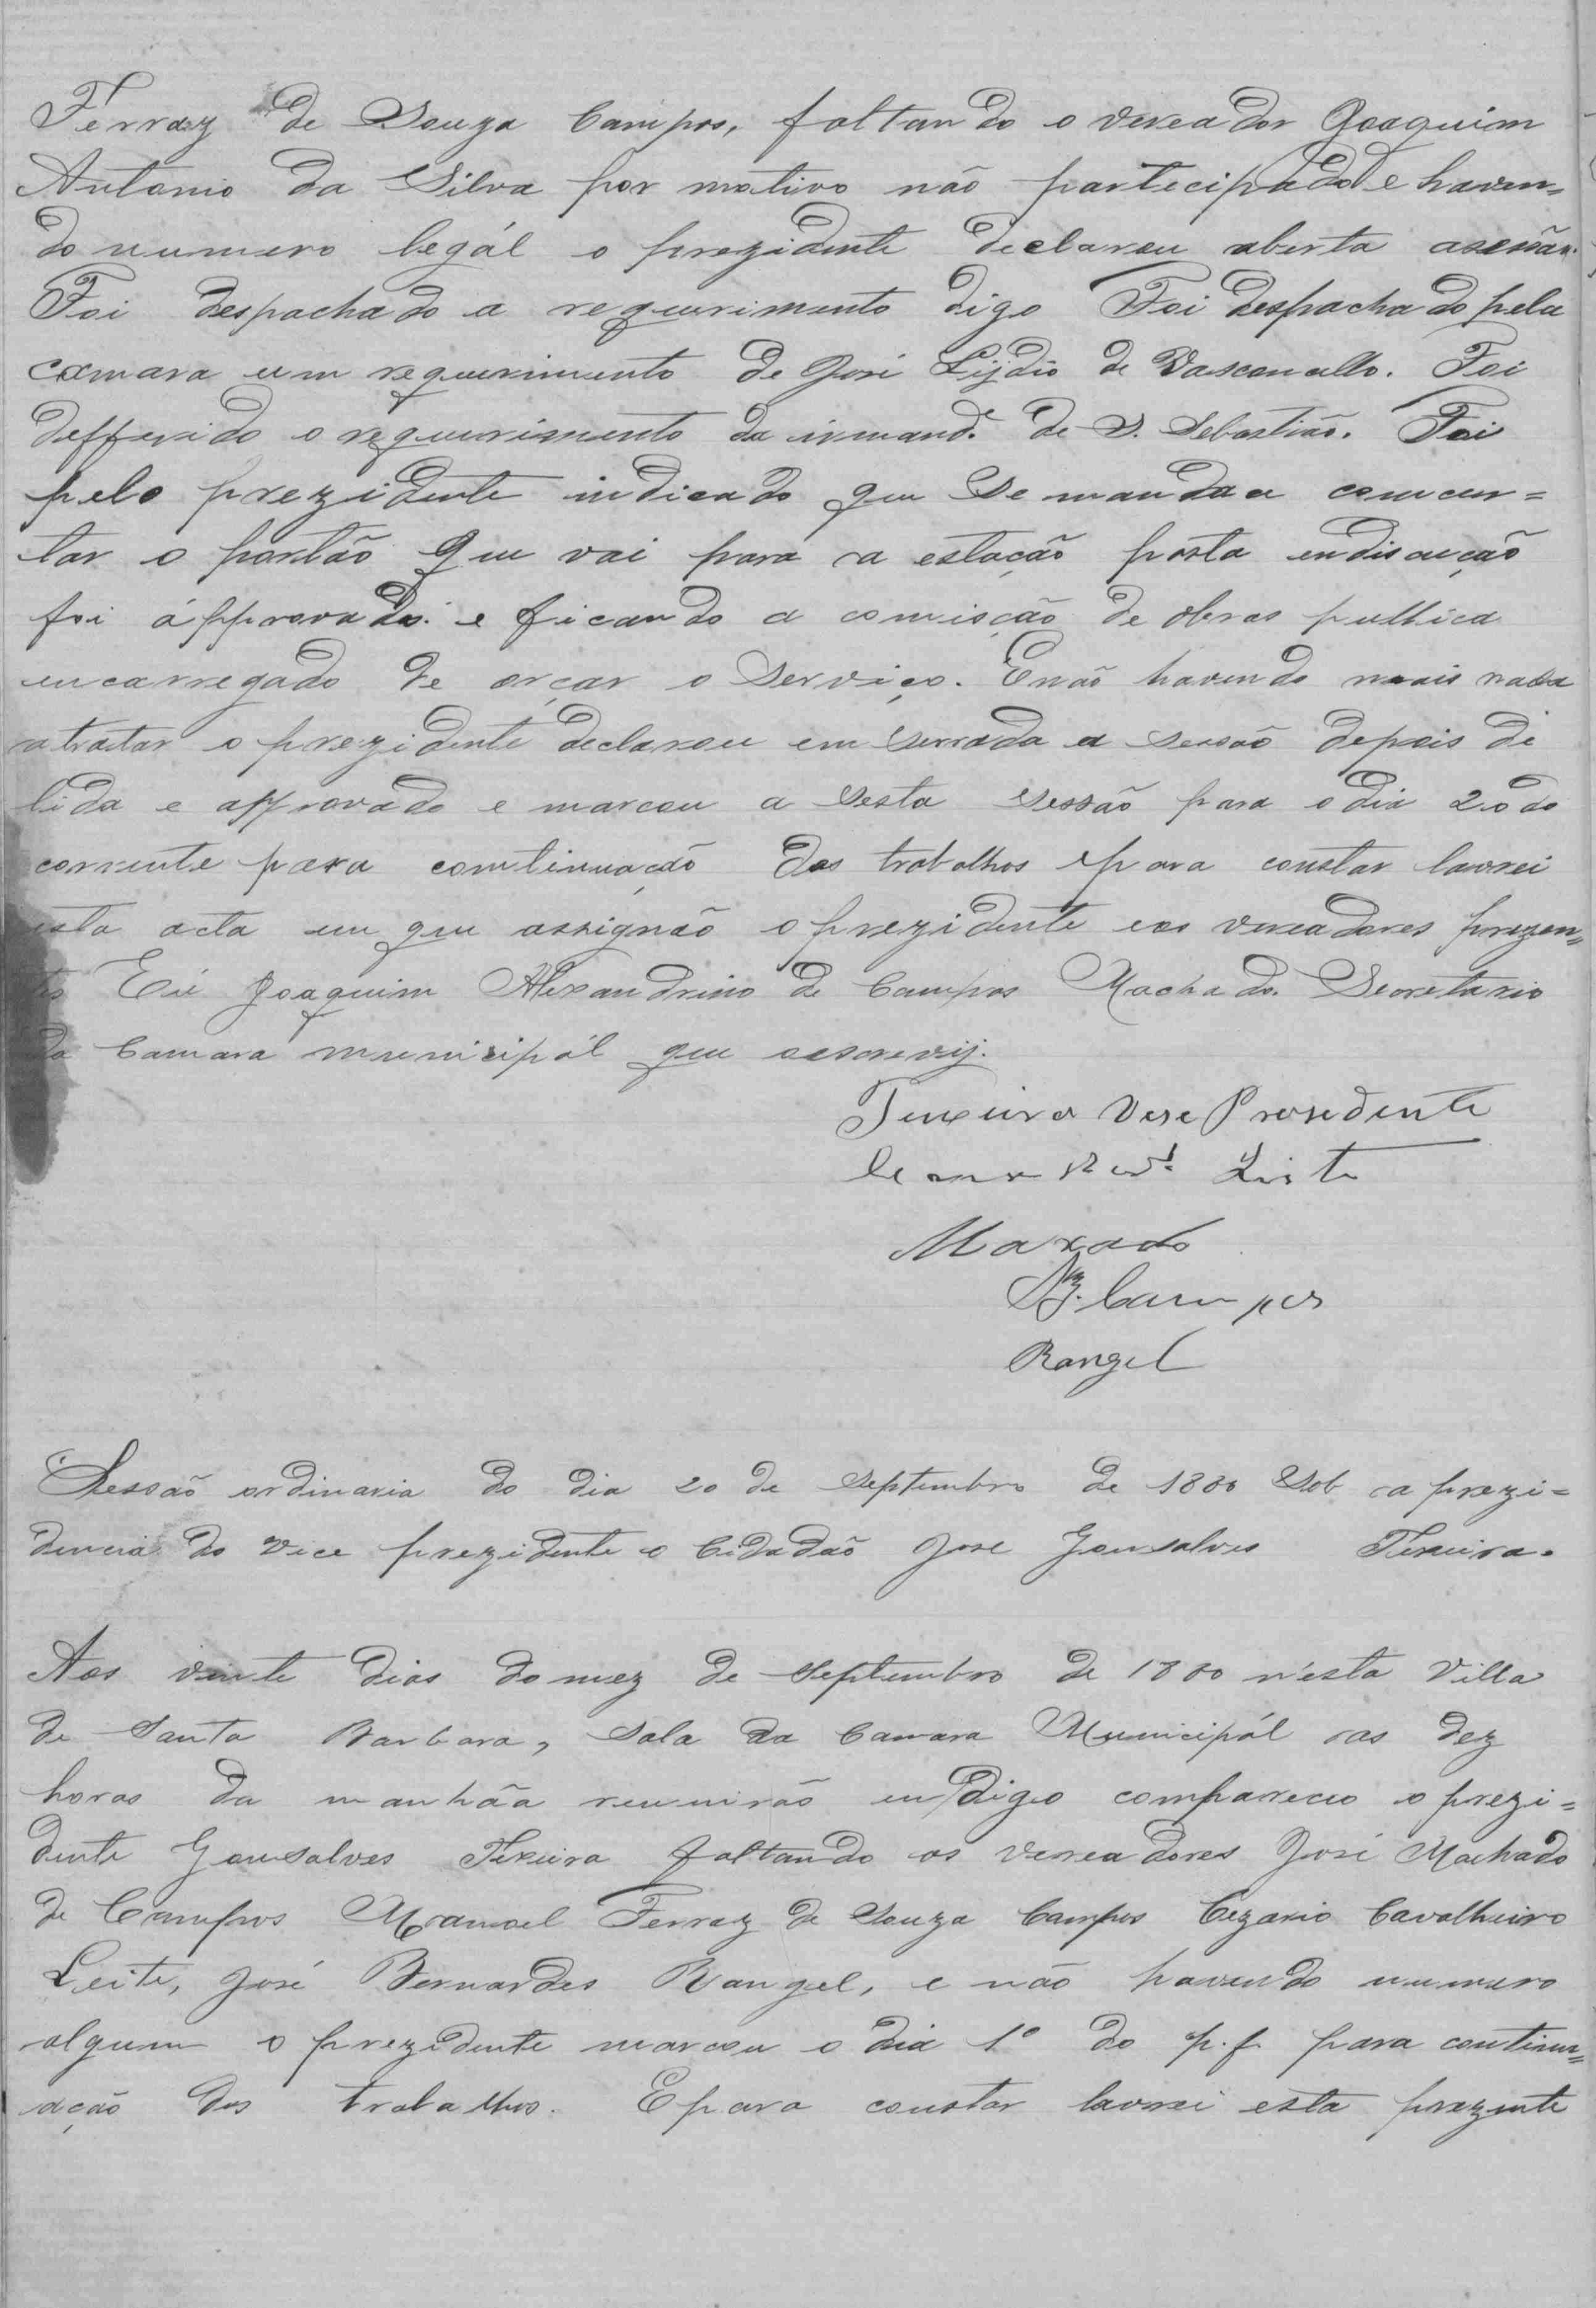 Ferraz de Souza Campos, faltando o vereador Joaquim
Antonio da Silva por motivo não partecipado e haven=
do numero legál o prezidente declarou aberta a sessão.
Foi despachado a requerimento digo Foi despachado pela
camara um requerimento de José Lijdio de Vasconcello. Foi
defferido o requerimento da irmand.e de S. Sebastião. Foi
pelo prezidente indicado que se mandace concer=
tar o portão que vai para a estação posta endiscução
foi ápprovado. e ficando a comisção de obras publica
encarregado de orçar o Serviço. E não havendo mais nada
a tratar o prezidente declarou em serrada a sessão depois de
lida e approvado e marcou a sesta sessão para o dia 20 do
corrente para continuação dos trabalhos e para constar lavrei
esta acta em que assignão o prezidente e os vereadores prezen=
tes Eu Joaquim Alexandrino de Campos Machado. Secretario
da Camara municipál que escrevij.
Texeira Vese Presedente
Leite
Maxado
Campos
Rangel
Sessão ordinaria do dia 20 de Septembro de 1880 Sob a prezi=
dencia do Vice prezidente o Cidadão Jose Gonsalves Texeira.
Aos vinte dias do mez de Septembro de 1880 n'esta Villa
de Santa Barbara, Sala da Camara Municipál as dez
horas da manhãa reunirão en digo compareceo o prezi=
dente Gonsalves Texeira faltando os vereadores José Machado
de Campos Manoel Ferraz de Souza Campos Cezario Cavalheiro
Leite, José Bernardes Rangel, e não havendo numero
algum o prezidente marcou o dia 1º do p. f. para continu=
ação dos trabalhos. E para constar lavrei esta prezente